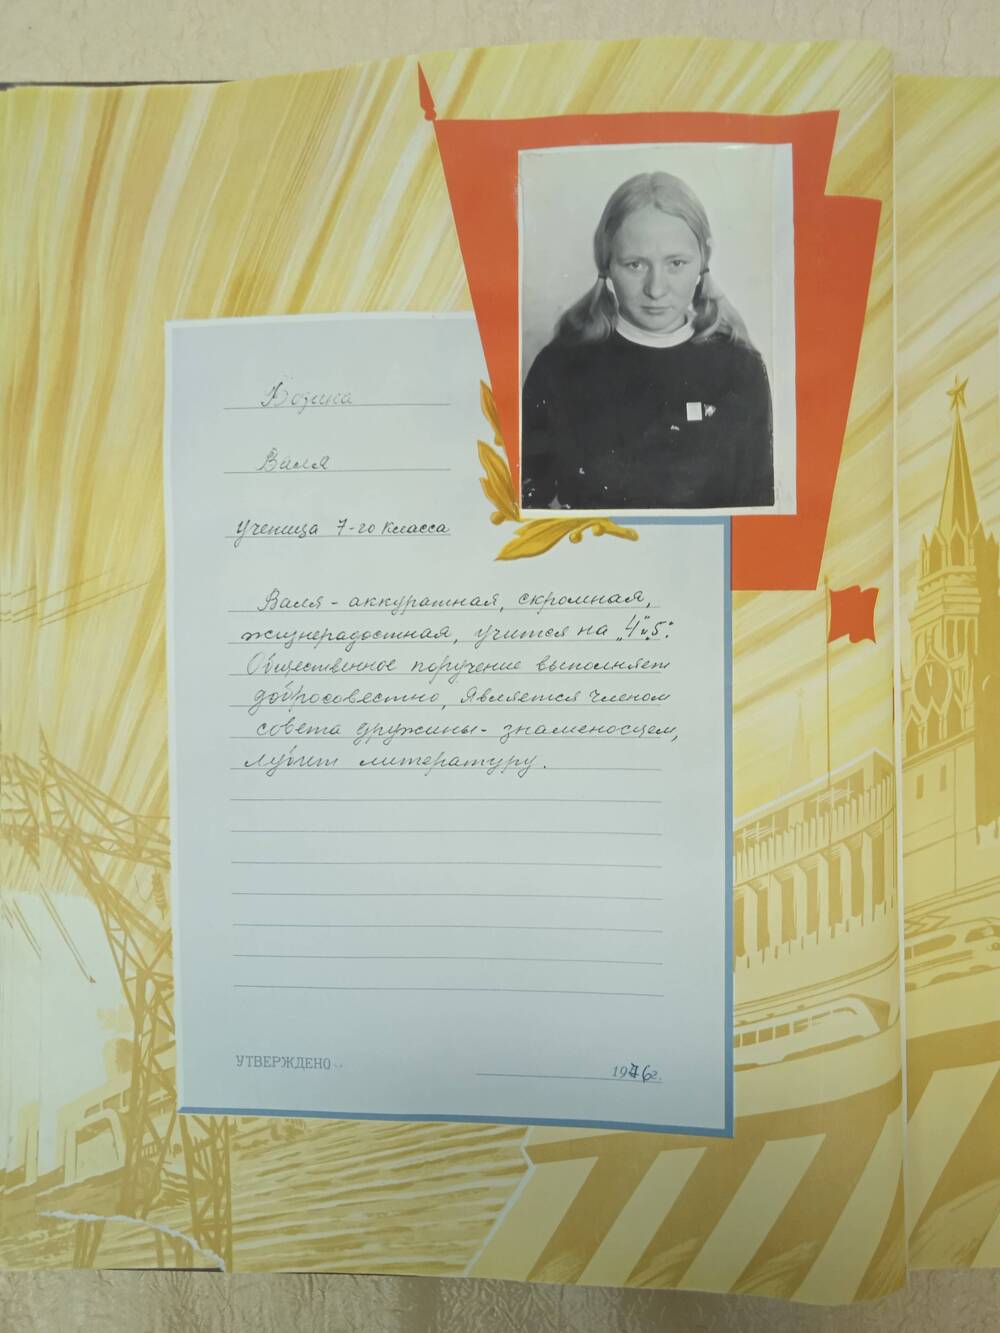 Валя
Ученица 7-го класса
Валя - аккуратная, скромная,
жизнерадостная, учится на „4"и„5".
Общественное поручение выполняет
добросовестно, является членом
совета дружины - знаменосцем,
любит литературу.
УТВЕРЖДЕНО
1976г.